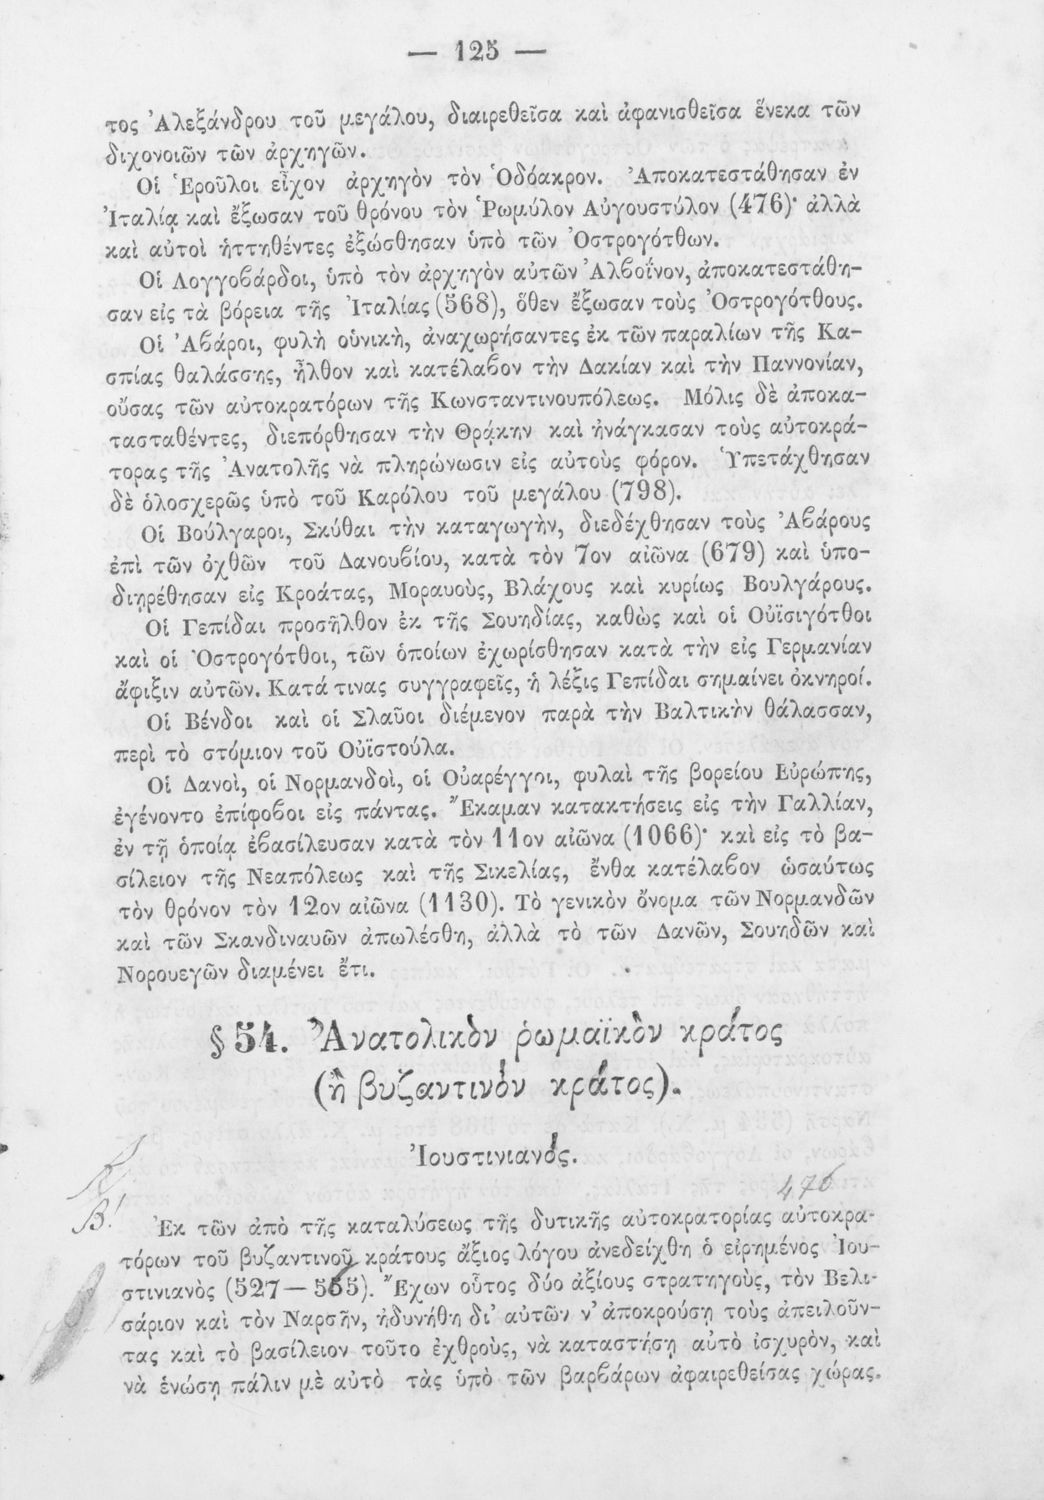 — 125 —
τος Ἀλεξάνδρου τοῦ μεγάλου, διαιρεθεῖσα καὶ ἀφανισθεῖσα ἕνεκα τῶν
διχονοιῶν τῶν ἀρχηγῶν.
Οἱ Ἐροῦλοι εἶχον ἀρχηγὸν τὸν Ὀδόακρον. Ἀποκατεστάθησαν ἐν
Ἰταλίᾳ καὶ ἔξωσαν τοῦ θρόνου τὸν Ῥωμύλον Αὐγουστύλον (476)· ἀλλὰ
καὶ αὐτοὶ ἡττηθέντες ἐξώσθησαν ὑπὸ τῶν Ὀστρογότθων.
Οἱ Λογγοβάρδοι, ὑπὸ τὸν ἀρχηγὸν αὐτῶν Ἀλβοΐνον, ἀποκατεστάθη-
σαν εἰς τὰ βόρεια τῆς Ἰταλίας (568), ὅθεν ἔξωσαν τοὺς Ὀστρογότθους.
Οἱ Ἀβάροι, φυλὴ οὑνικὴ, ἀναχωρήσαντες ἐκ τῶν παραλίων τῆς Κα-
σπίας θαλάσσης, ἦλθον καὶ κατέλαβον τὴν Δακίαν καὶ τὴν Παννονίαν,
οὔσας τῶν αὐτοκρατόρων τῆς Κωνσταντινουπόλεως. Μόλις δὲ ἀποκα-
τασταθέντες, διεπόρθησαν τὴν Θρᾴκην καὶ ἠνάγκασαν τοὺς αὐτοκρά-
τορας τῆς Ἀνατολῆς νὰ πληρώνωσιν εἰς αὐτοὺς φόρον. Ὑπετάχθησαν
δὲ ὁλοσχερῶς ὑπὸ τοῦ Καρόλου τοῦ μεγάλου (798).
Οἱ Βούλγαροι, Σκύθαι τὴν καταγωγὴν, διεδέχθησαν τοὺς Ἀβάρους
ἐπὶ τῶν ὀχθῶν τοῦ Δανουβίου, κατὰ τὸν 7ον αἰῶνα (679) καὶ ὑπο-
διῃρέθησαν εἰς Κροάτας, Μοραυοὺς, Βλάχους καὶ κυρίως Βουλγάρους.
Οἱ Γεπίδαι προσῆλθον ἐκ τῆς Σουηδίας, καθὼς καὶ οἱ Οὐϊσιγότθοι
καὶ οἱ Ὀστρογότθοι, τῶν ὁποίων ἐχωρίσθησαν κατὰ τὴν εἰς Γερμανίαν
ἄφιξιν αὐτῶν. Κατά τινας συγγραφεῖς, ἡ λέξις Γεπίδαι σημαίνει ὀκνηροί.
Οἱ Βένδοι καὶ οἱ Σλαῦοι διέμενον παρὰ τὴν Βαλτικὴν θάλασσαν,
περὶ τὸ στόμιον τοῦ Οὐϊστούλα.
Οἱ Δανοὶ, οἱ Νορμανδοὶ, οἱ Οὐαρέγγοι, φυλαὶ τῆς βορείου Εὐρώπης,
ἐγένοντο ἐπίφοβοι εἰς πάντας. Ἔκαμαν κατακτήσεις εἰς τὴν Γαλλίαν,
ἐν τῇ ὁποίᾳ ἐβασίλευσαν κατὰ τὸν 11ον αἰῶνα (1066)· καὶ εἰς τὸ βα-
σίλειον τῆς Νεαπόλεως καὶ τῆς Σικελίας, ἔνθα κατέλαβον ὡσαύτως
τὸν θρόνον τὸν 12ον αἰῶνα (1130). Τὸ γενικὸν ὄνομα τῶν Νορμανδῶν
καὶ τῶν Σκανδιναυῶν ἀπωλέσθη, ἀλλὰ τὸ τῶν Δανῶν, Σουηδῶν καὶ
Νορουεγῶν διαμένει ἔτι.
§ 54. Ἀνατολικὸν ῥωμαϊκὸν κράτος
(ἢ βυζαντινὸν κράτος).
Ἰουστινιανός.
476
Β'.
Ἐκ τῶν ἀπὸ τῆς καταλύσεως τῆς δυτικῆς αὐτοκρατορίας αὐτοκρα-
τόρων τοῦ βυζαντινοῦ κράτους ἄξιος λόγου ἀνεδείχθη ὁ εἰρημένος Ἰου-
στινιανὸς (527 — 565). Ἔχων οὗτος δύο ἀξίους στρατηγοὺς, τὸν Βελι-
σάριον καὶ τὸν Ναρσῆν, ἠδυνήθη δι' αὐτῶν ν' ἀποκρούσῃ τοὺς ἀπειλοῦν-
τας καὶ τὸ βασίλειον τοῦτο ἐχθροὺς, νὰ καταστήσῃ αὐτὸ ἰσχυρὸν, καὶ
νὰ ἑνώσῃ πάλιν μὲ αὐτὸ τὰς ὑπὸ τῶν βαρβάρων ἀφαιρεθείσας χώρας.